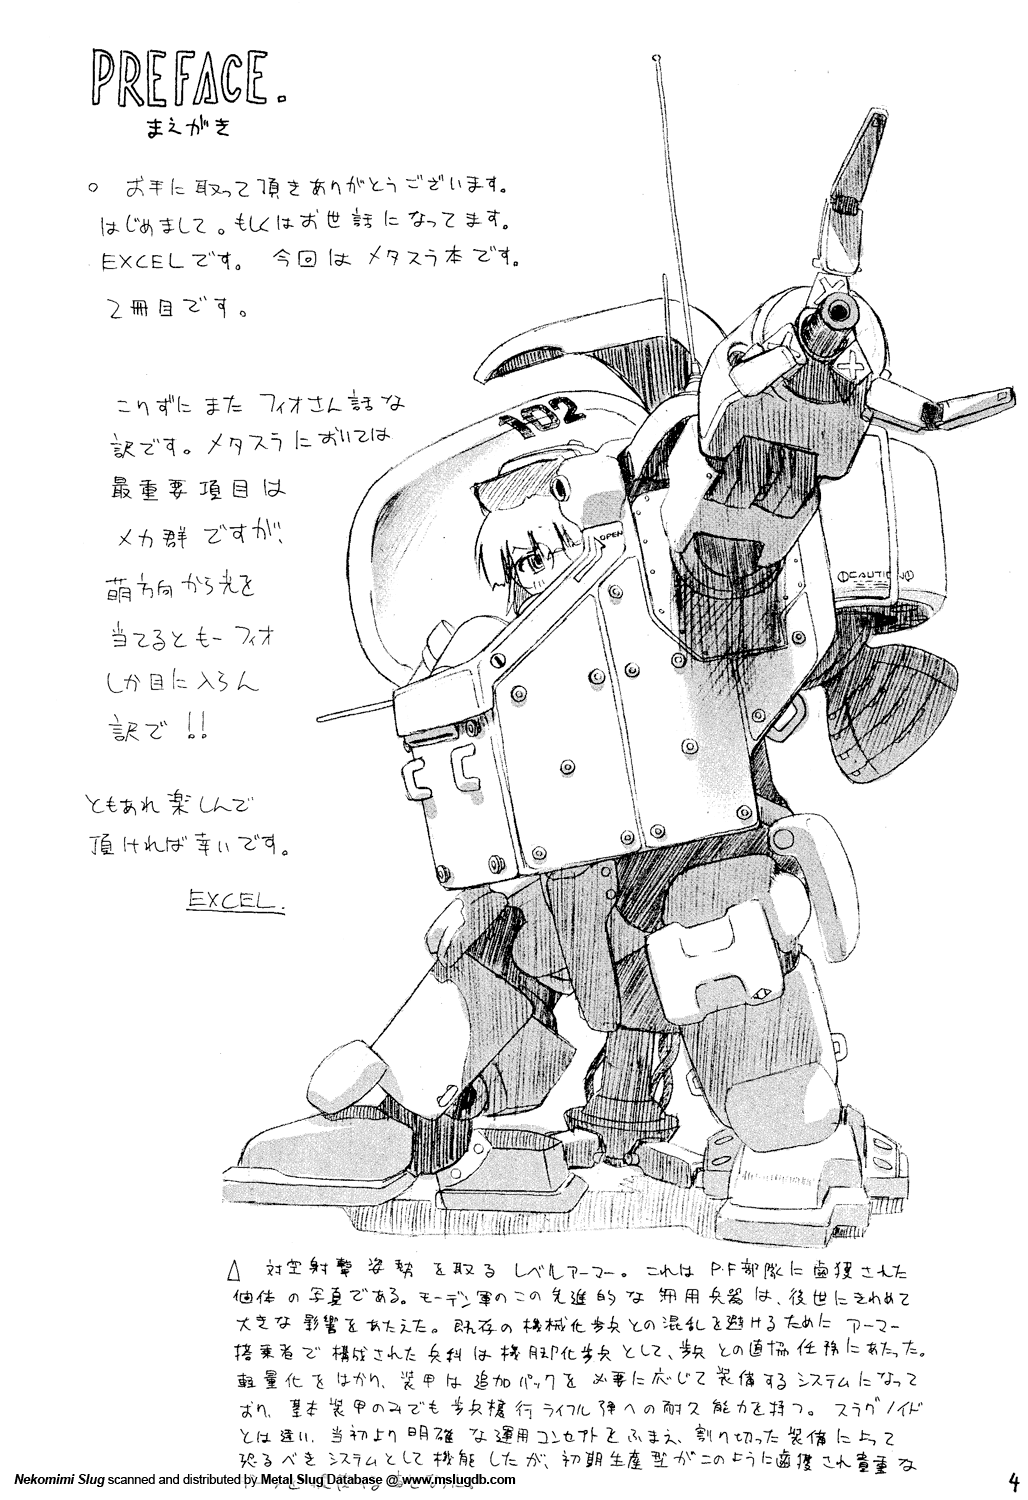 PREFACE.
まえがき
。お手に取って頂きありがとうございます。
はじめまして。もしくはお世話になってます。
EXCELです。 今回はメタスラ本です。
2冊目です。
こりずにまたフィオさん話な
訳です。メタスラにおいては
最重要項目は
メカ群ですが、
萌方向から光を
当てるともーフィオ
しか目に入らん
訳で!!
ともあれ楽しんで
頂ければ幸いです。
EXCEL.
102
OPEN
CAUTION
△ 対空射撃姿勢を取るレベルアーマー。これはP.F部隊に鹵獲された
個体の写真である。モーデン軍のこの先進的な 用兵器は、後世にきわめて
大きな影響をあたえた。既存の機械化歩兵との混乱を避けるためにアーマー
搭乗者で構成された兵科は機脚化歩兵として、歩兵との直協任務にあたった。
軽量化をはかり、装甲は追加パックを必要に応じて装備するシステムになって
おり、基本装甲のみでも歩兵携行ライフル弾への耐久能力を持つ。スラグノイド
とは違い、当初より明確な運用コンセプトをふまえ、割り切った装備によって
恐るべきシステムとして機能したが、初期生産型がこのように鹵獲され貴重な
Nekomimi Slug scanned and distributed by Metal Slug Database @ www.mslugdb.com
4